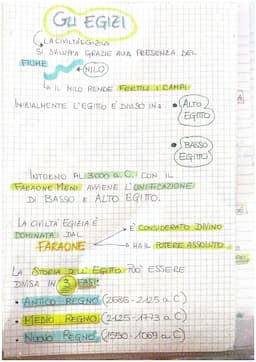 GLI EGIZI
LA CIVILTÀ EGIZIA
SI SVILUPPA GRAZIE ALLA PRESENZA DEL
FIUME NILO
IL NILO RENDE FERTILI I CAMPI
INIZIALMENTE L'EGITTO È DIVISO IN:
• ALTO
EGITTO
• BASSO
EGITTO
INTORNO AL 3000 a.C. CON IL
FARAONE MENI AVVIENE L'UNIFICAZIONE
DI BASSO E ALTO EGITTO.
LA CIVILTÀ EGIZIA È
DOMINATA DAL
FARAONE
È CONSIDERATO DIVINO
HA IL POTERE ASSOLUTO
LA STORIA DELL'EGITTO PUÒ ESSERE
DIVISA IN 3 FASI:
• ANTICO REGNO (2686-2125 a.C)
• MEDIO REGNO (2125-1773 a.C)
• NUOVO REGNO (1550-1069 a.C)